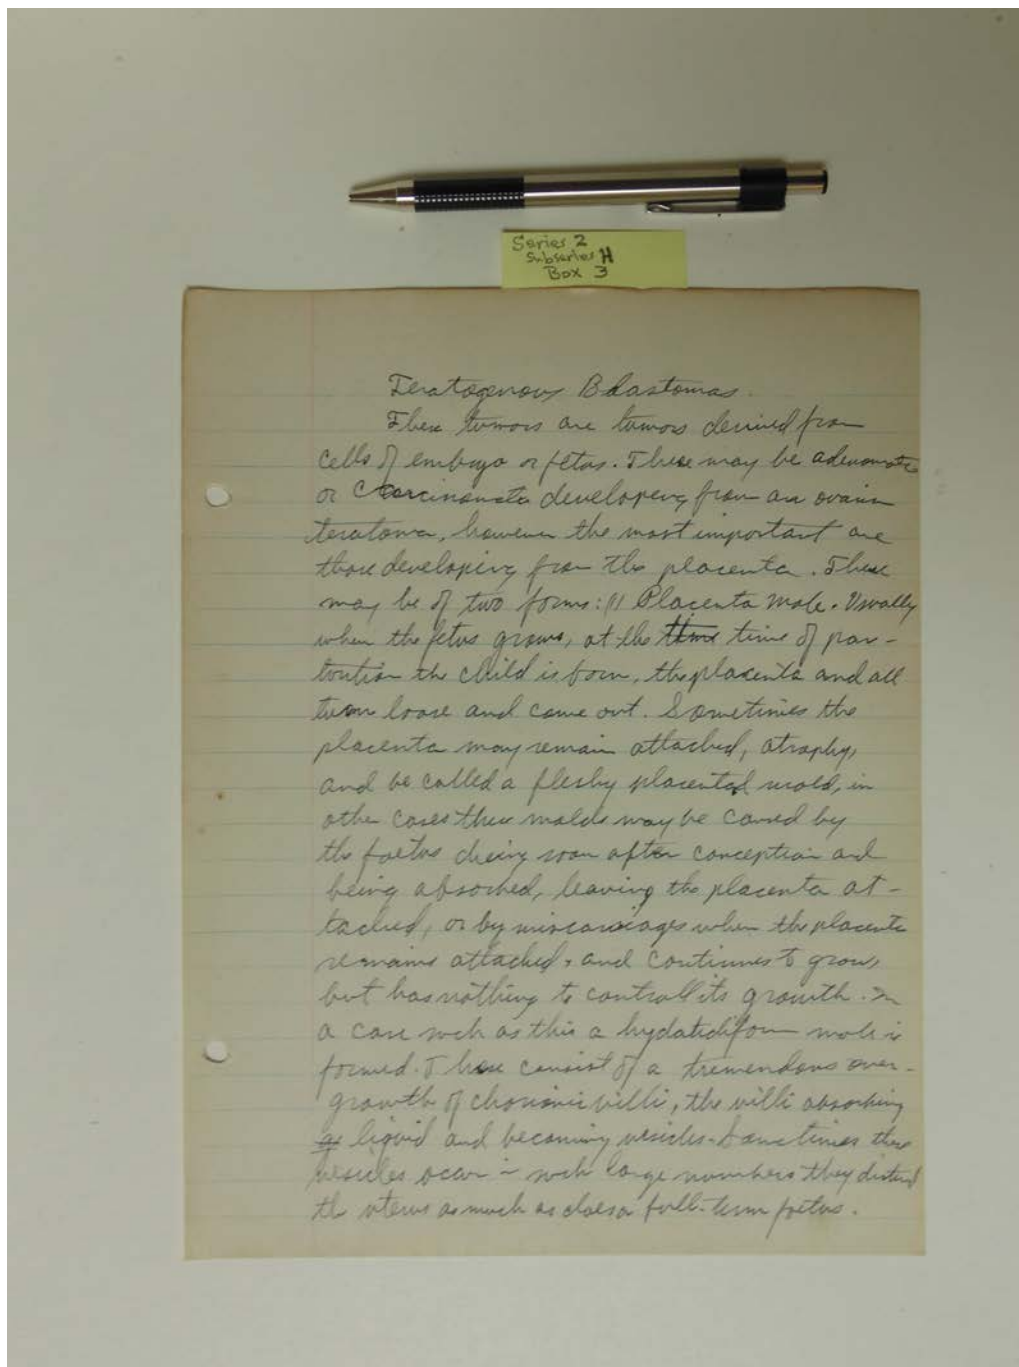 Series 2
Subseries H
Box 3
Teratogenous Blastomas.
These tumors are tumors derived from
cells of embryo or fetus. These may be adenomata
or Carcinomata developing from an ovarian
teratoma, however the most important are
those developing from the placenta. These
may be of two forms: (1 Placenta Mole. Usually
when the fetus grows, at the time time of par-
tution the child is born, the placenta and all
turn loose and come out. Sometimes the
placenta may remain attached, atrophy,
and be called a fleshy placental mold, in
other cases these molds may be caused by
the foetus dieing soon after conception and
being absorbed, leaving the placenta at-
tached, or by miscarriages when the placenta
remains attached, and continues to grow,
but has nothing to controll its growth. In
a case such as this a hydatidiform mole is
formed. These consist of a tremendous over-
growth of chorionic villi, the villi absorbing
liquid and becoming vesicles. Sometimes these
vesicles occur in such large numbers they distend
the uterus as much as does a full-term foetus.